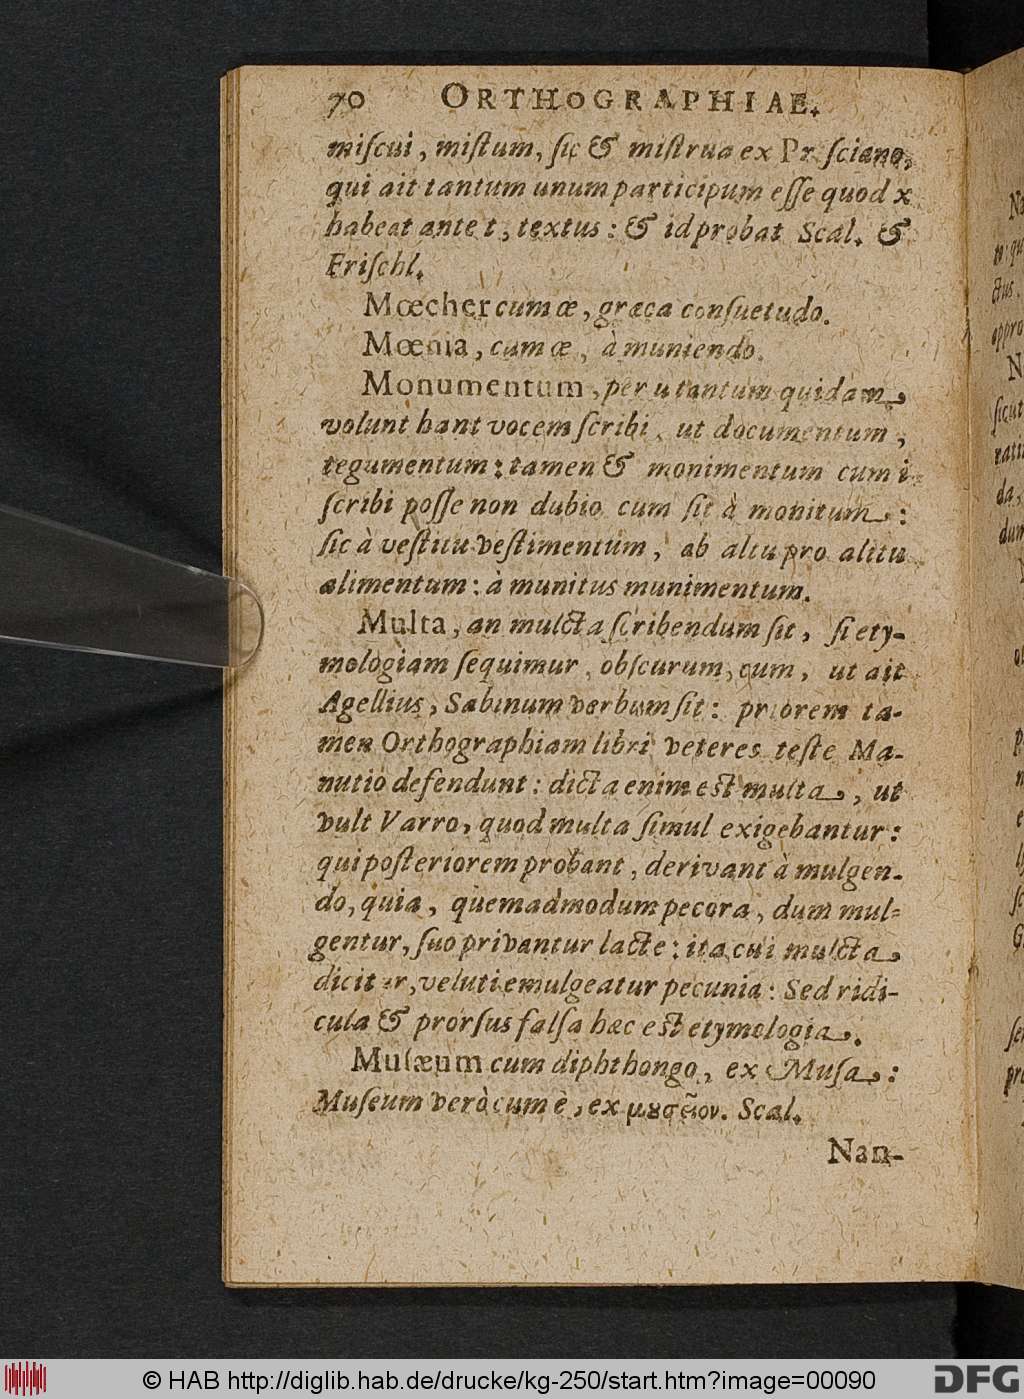 70 ORTHOGRAPHIAE.
miſcui, miſtum, ſic & miſtrua ex Pr ſciano,
qui ait tantum unum participum eſſe quod x
habeat ante t, textus: & id probat Scal. &
Friſchl.
Mœcher cum œ, græca conſuetudo.
Mœnia, cum œ, à muniendo.
Monumentum, per u tantum quidam
volunt hant vocem ſcribi, ut documentum,
tegumentum: tamen & monimentum cum i
ſcribi poſſe non dubio cum ſit à monitum:
ſic à veſtitu veſtimentum, ab altu pro alitu
alimentum: à munitus munimentum.
Multa, an mulcta ſcribendum ſit, ſi ety-
mologiam ſequimur, obſcurum, cum, ut ait
Agellius, Sabinum verbum ſit: priorem ta-
men Orthographiam libri veteres teſte Ma-
nutio defendunt: dicta enim est multa, ut
vult Varro, quod multa ſimul exigebantur:
qui poſteriorem probant, derivant à mulgen-
do, quia, quemadmodum pecora, dum mul-
gentur, ſuo privantur lacte: ita cui mulcta
dicitur, veluti emulgeatur pecunia: Sed ridi-
cula & prorſus falſa hæc est etymologia.
Muſæum cum diphthongo, ex Muſa:
Muſeum verò cum è, ex μȣσεῖον. Scal.
Nan-
© HAB http://diglib.hab.de/drucke/kg-250/start.htm?image=00090
DFG